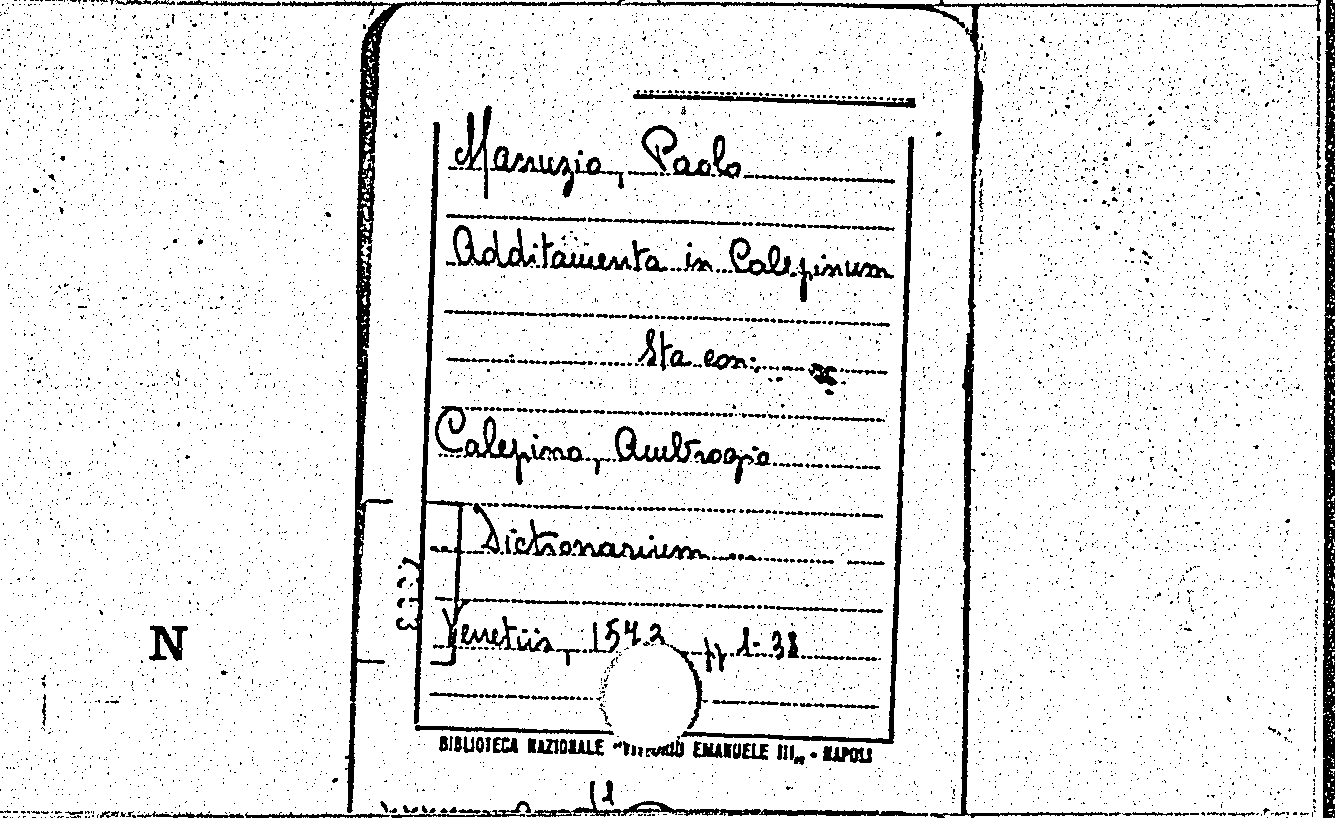 Manuzio, Paolo
Additamenta in Calepinum
Sta con:
Calepino, Ambrogio
Dictionarium
Venetiis, 1542 pp 1-38
N
BIBLIOTECA NAZIONALE "VITTORIO EMANUELE III" - NAPOLI